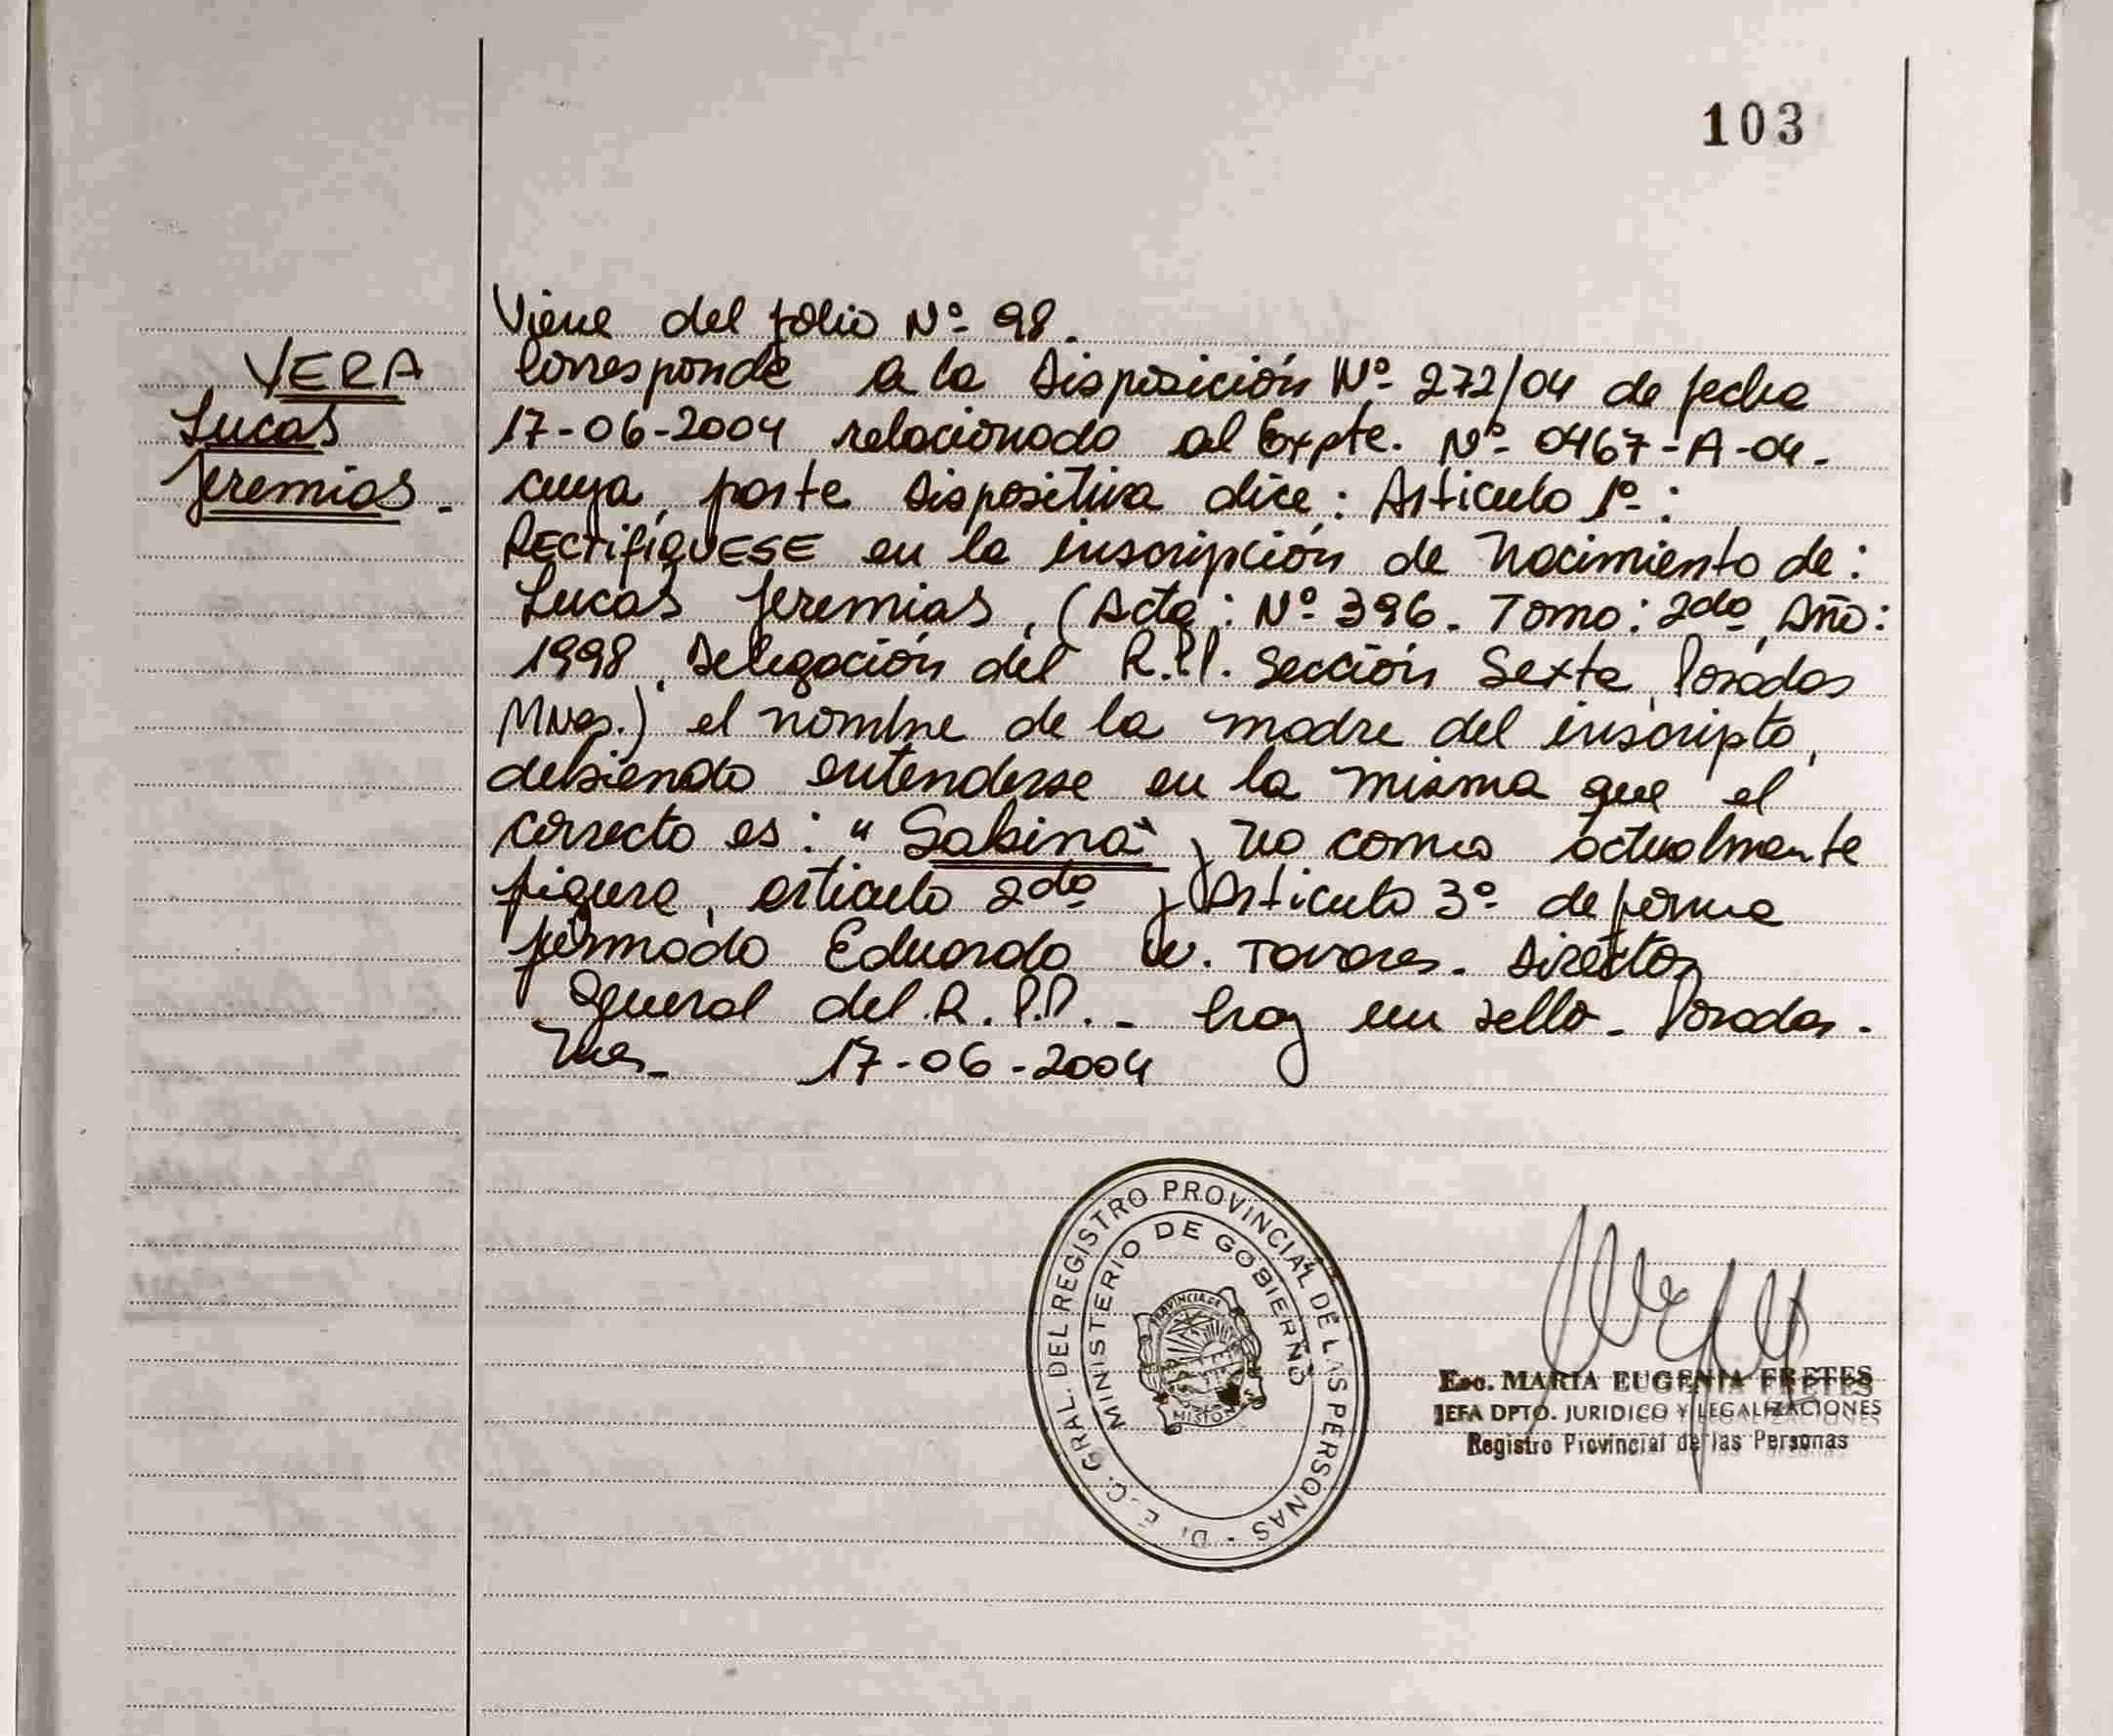 103
VERA
Lucas
Jeremias.
Viene del folio Nº 98.
Corresponde a la Disposición Nº 272/04 de fecha
17-06-2004 relacionado al Expte. Nº 0467-A-04.
cuya parte dispositiva dice: Artículo 1º:
RECTIFÍQUESE en la inscripción de Nacimiento de:
Lucas Jeremias, (Acta: Nº 396. Tomo: 2do, Año:
1998, Delegación del R.P.P. Sección Sexta, Posadas
MNes.) el nombre de la madre del inscripto,
debiendo entenderse en la misma que el
correcto es: "Sabina" y no como actualmente
figura, articulo 2do y Articulo 3º de forma
firmado Eduardo W. Tavares. Director
General del R.P.P. - hay un sello - Posadas.
Mnes 17-06-2004
DI. E. C. GRAL. DEL REGISTRO PROVINCIAL DE LAS PERSONAS -
MINISTERIO DE GOBIERNO
PROVINCIA DE
MISIONES
Esc. MARIA EUGENIA FRETES
JEFA DPTO. JURIDICO Y LEGALIZACIONES
Registro Provincial de las Personas